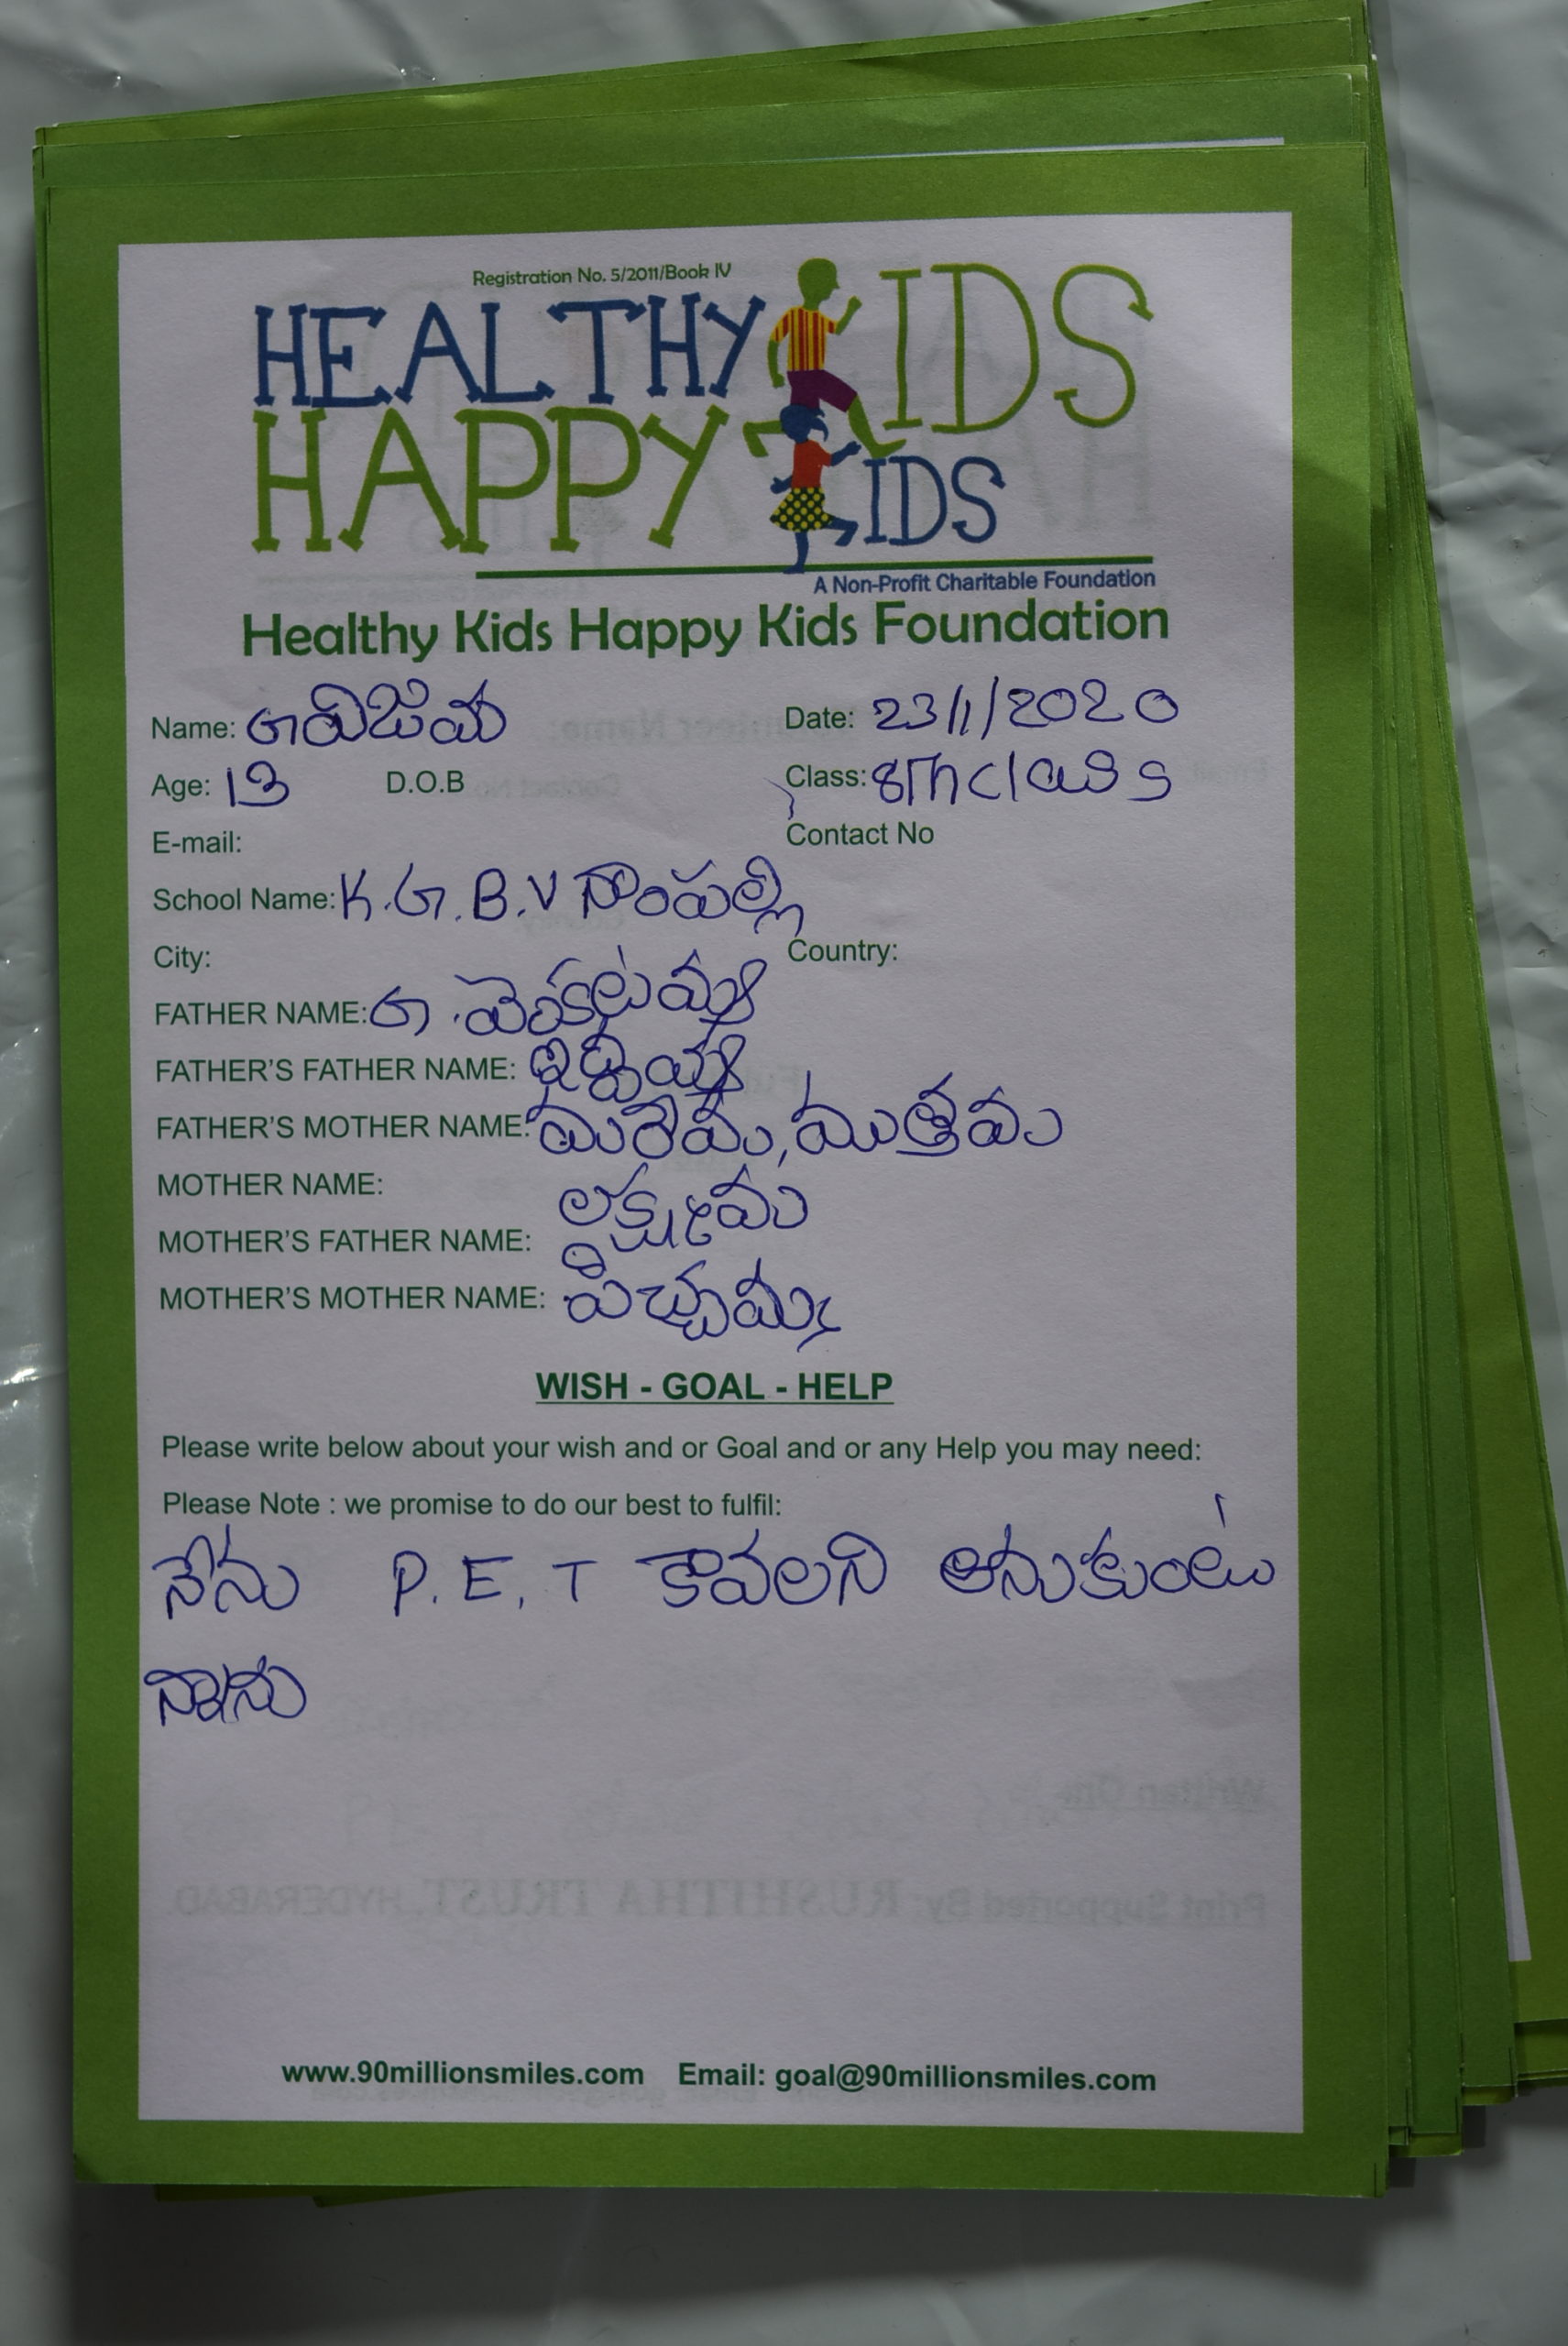 Registration No. 5/2011/Book IV
HEALTHY KIDS
HAPPY KIDS
A Non-Profit Charitable Foundation
Healthy Kids Happy Kids Foundation
Name: G విజయ Date: 23/1/2020
Age: 13 D.O.B Class: 8Th class
E-mail: Contact No
School Name: K.G.B.V నాంపల్లి
City: Country:
FATHER NAME: G. వెంకటయ్య
FATHER'S FATHER NAME:
FATHER'S MOTHER NAME: ముత్తమ
MOTHER NAME: లక్ష్మమ
MOTHER'S FATHER NAME:
MOTHER'S MOTHER NAME: పిచ్చమ్మ
WISH - GOAL - HELP
Please write below about your wish and or Goal and or any Help you may need:
Please Note : we promise to do our best to fulfil:
నేను P.E.T కావలని అనుకుంటు
న్నాను
www.90millionsmiles.com Email: goal@90millionsmiles.com